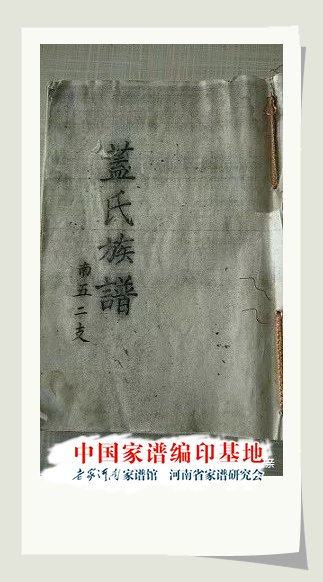 蓋氏族譜
南五二支
中国家谱编印基地
老家河南家谱馆 河南省家谱研究会
亲